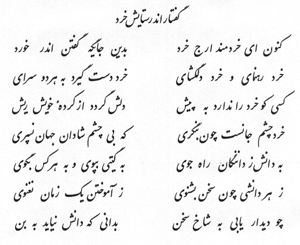 گفتار اندر ستایش خرد
کنون ای خردمند ارج خرد بدین جایگه گفتن اندر خورد
خرد رهنمای و خرد دلگشای خرد دست گیرد به هر دو سرای
کسی کو خرد را ندارد به پیش دلش گردد از کردهٔ خویش ریش
خرد چشم جانست چون بنگری که بی چشم شادان جهان نسپری
به دانش ز دانندگان راه جوی به گیتی بپوی و به هر کس بگوی
ز هر دانشی چون سخن بشنوی ز آموختن یک زمان نغنوی
چو دیدار یابی به شاخ سخن بدانی که دانش نیاید به بن